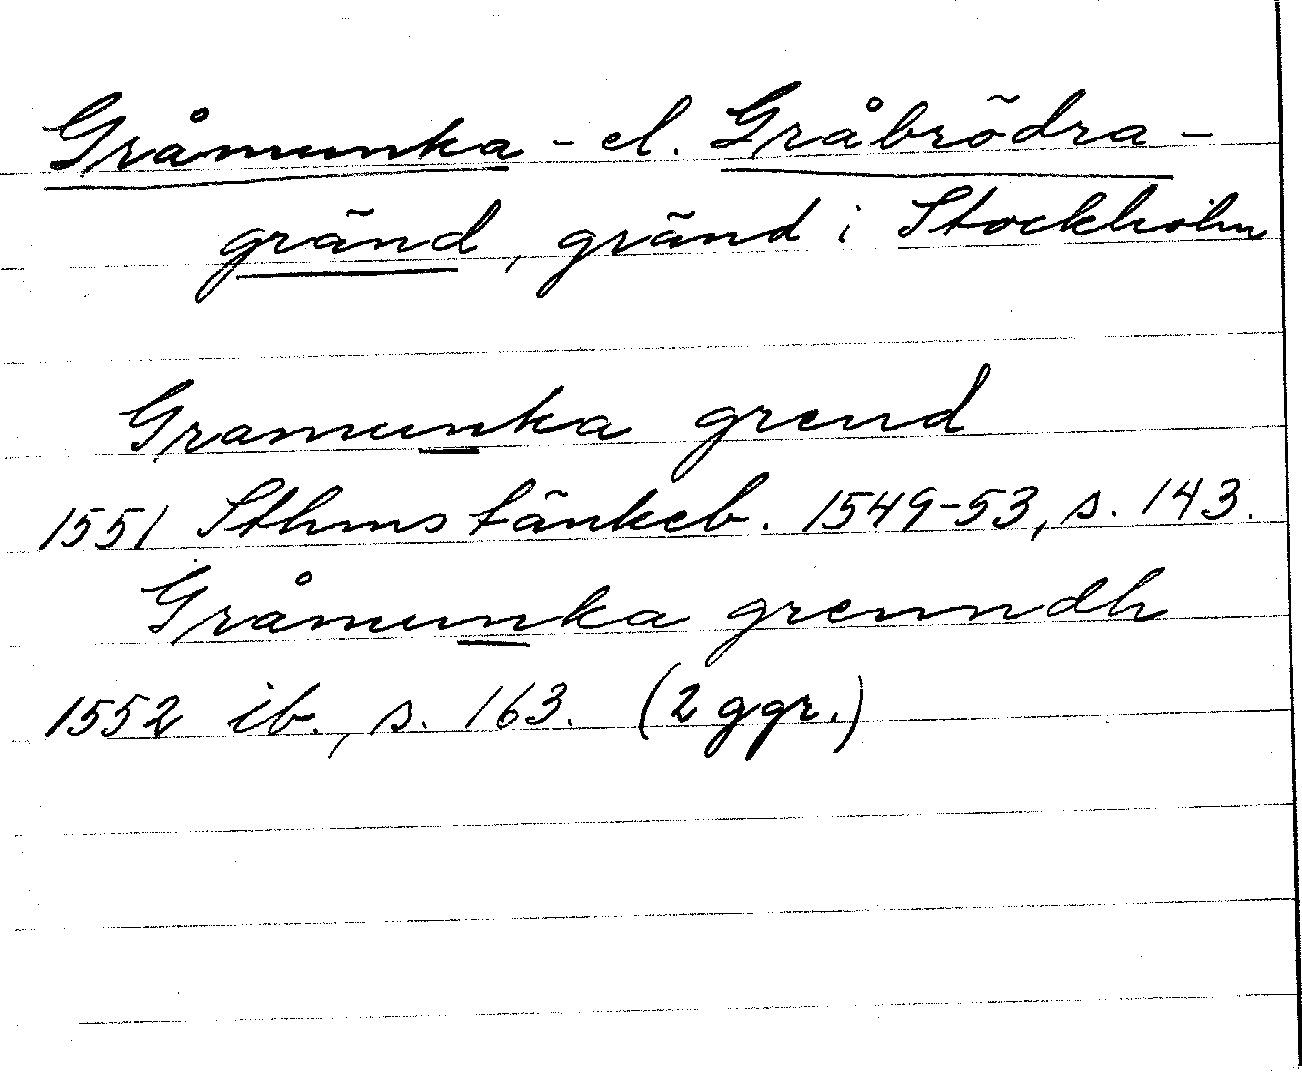 Gråmunka - el. Gråbrödra -
gränd, gränd i Stockholm
Gramunka grend
1551 Sthms tänkeb. 1549-53, s. 143.
Gråmunka grenndh
1552 ib., s. 163. (2 ggr.)